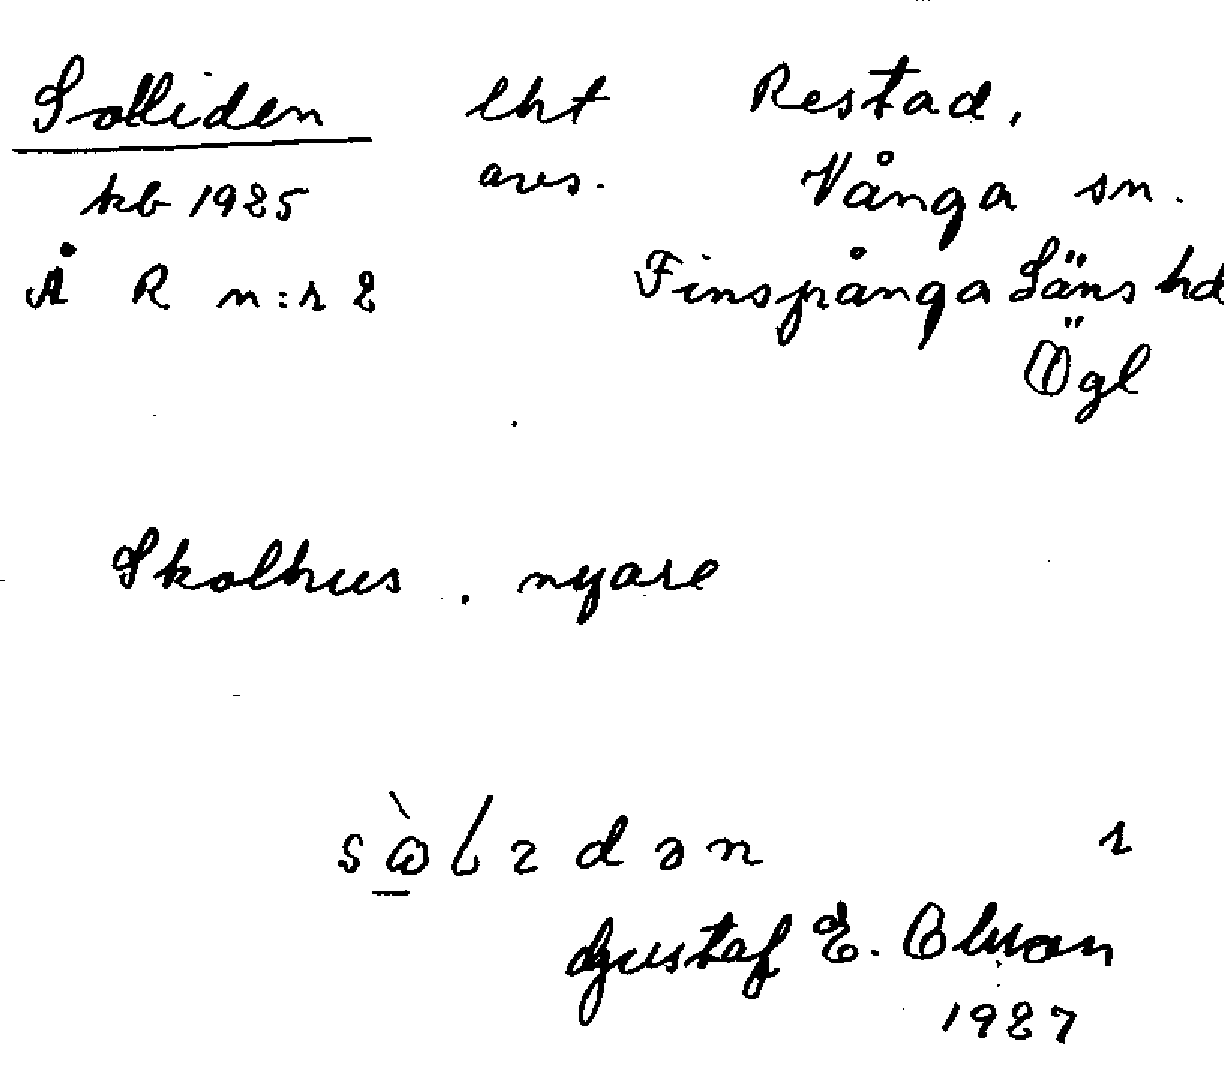 Solliden lht Restad,
kb 1925 avs. Vånga sn.
Å R n:r 2 Finspånga Läns hd
Ögl
Skolhus. nyare
Gustaf E. Olsson
1927